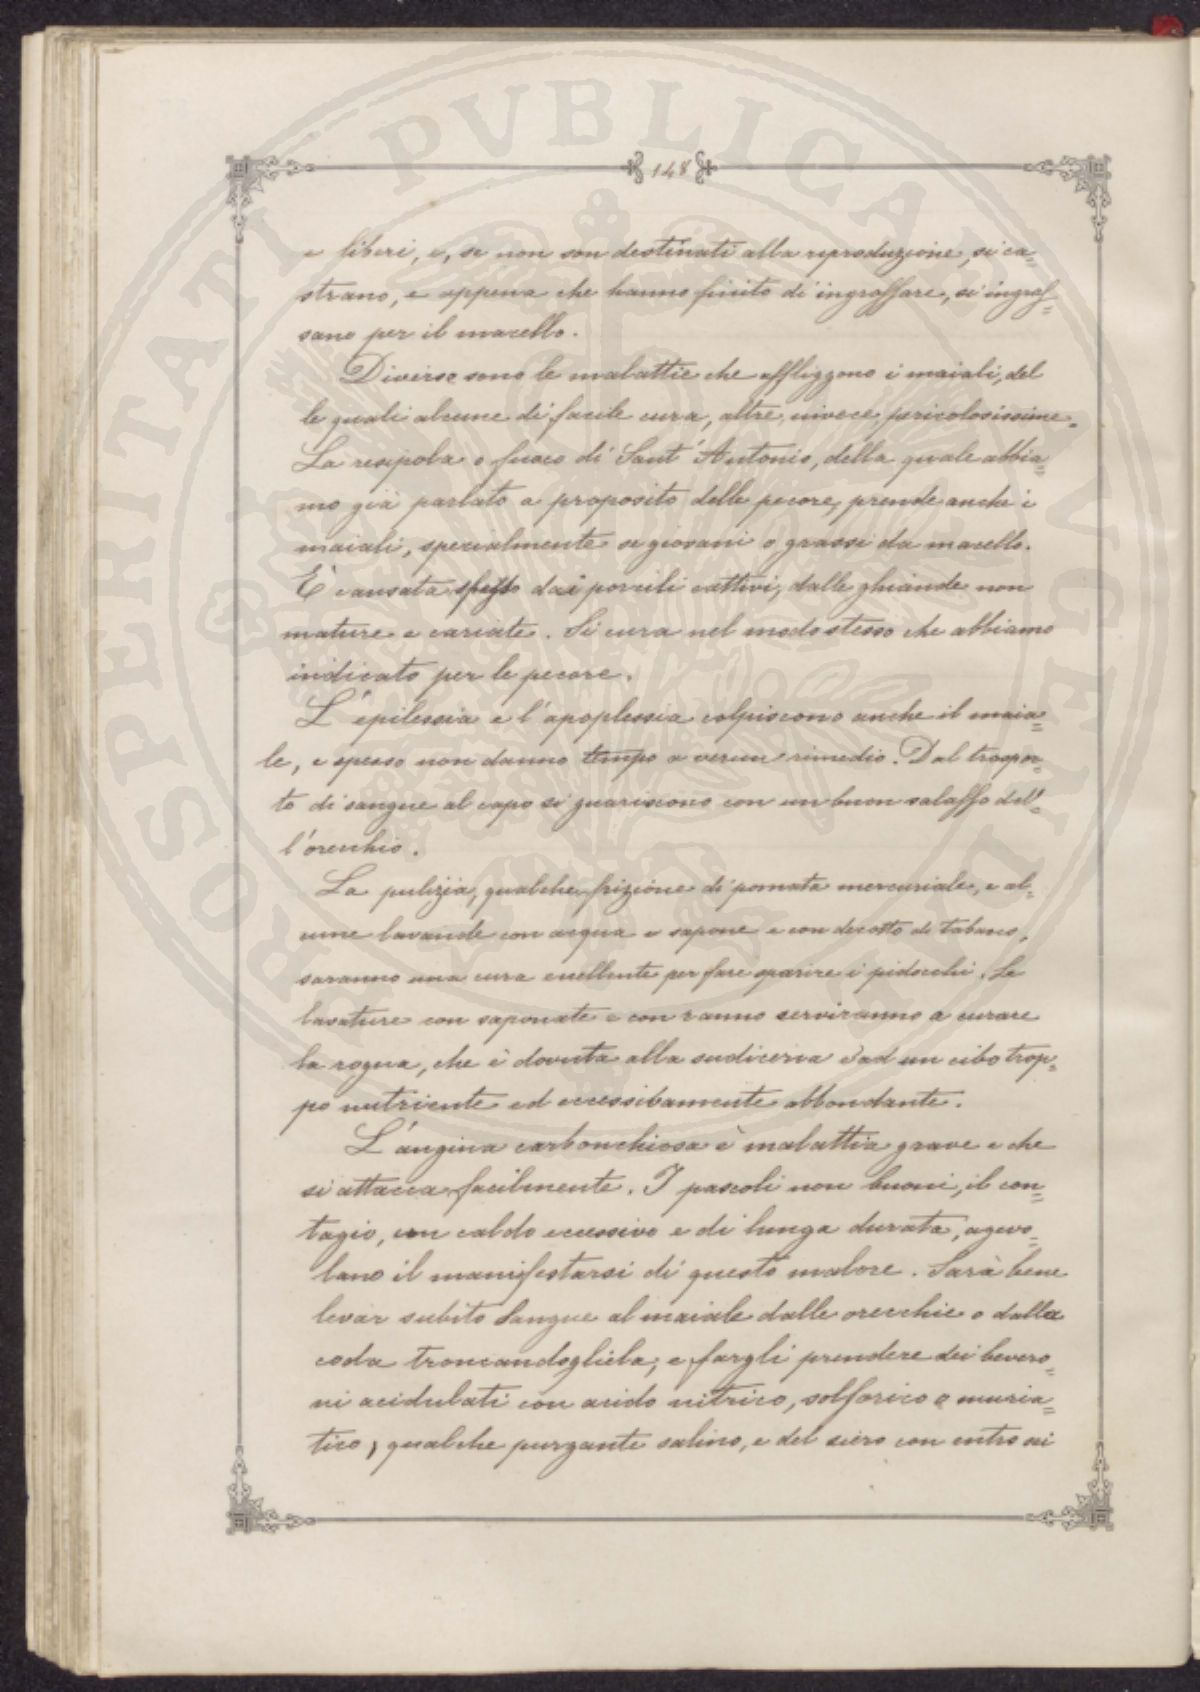 PROSPERITATI PUBLICAE AUGENDAE
148
e liberi, e, se non son destinati alla riproduzione, si ca-
strano, e appena che hanno finito di ingrassare, si ingras=
sano per il macello.
Diverse sono le malattie che affliggono i maiali, del
le quali alcune di facile cura, altre, invece, pericolosissime.
La resipola o fuoco di Sant'Antonio, della quale abbia=
mo già parlato a proposito delle pecore, prende anche i
maiali, specialmente se giovani o grassi da macello.
È causata spesso dai porcili cattivi, dalle ghiande non
mature e cariate. Si cura nel modo stesso che abbiamo
indicato per le pecore.
L'epilessia e l'apoplessia colpiscono anche il maia=
le, e spesso non danno tempo a verun rimedio. Dal traspor=
to di sangue al capo si guariscono con un buon salasso del=
l'orecchio.
La pulizia, qualche frizione di pomata mercuriale, e al=
cune lavande con acqua e sapone e con decotto di tabacco,
saranno una cura eccellente per fare sparire i pidocchi. Le
lavature con saponate e con ranno serviranno a curare
la rogna, che è dovuta alla sudiceria e ad un cibo trop=
po nutriente ed eccessivamente abbondante.
L'angina carbonchiosa è malattia grave e che
si attacca facilmente. I pascoli non buoni, il con=
tagio, un caldo eccessivo e di lunga durata, agevo=
lano il manifestarsi di questo malore. Sarà bene
levar subito sangue al maiale dalle orecchie o dalla
coda troncandogliela; e fargli prendere dei bevero=
ni acidulati con acido nitrico, solforico o muria=
tico, qualche purgante salino, e del siero con entro ni